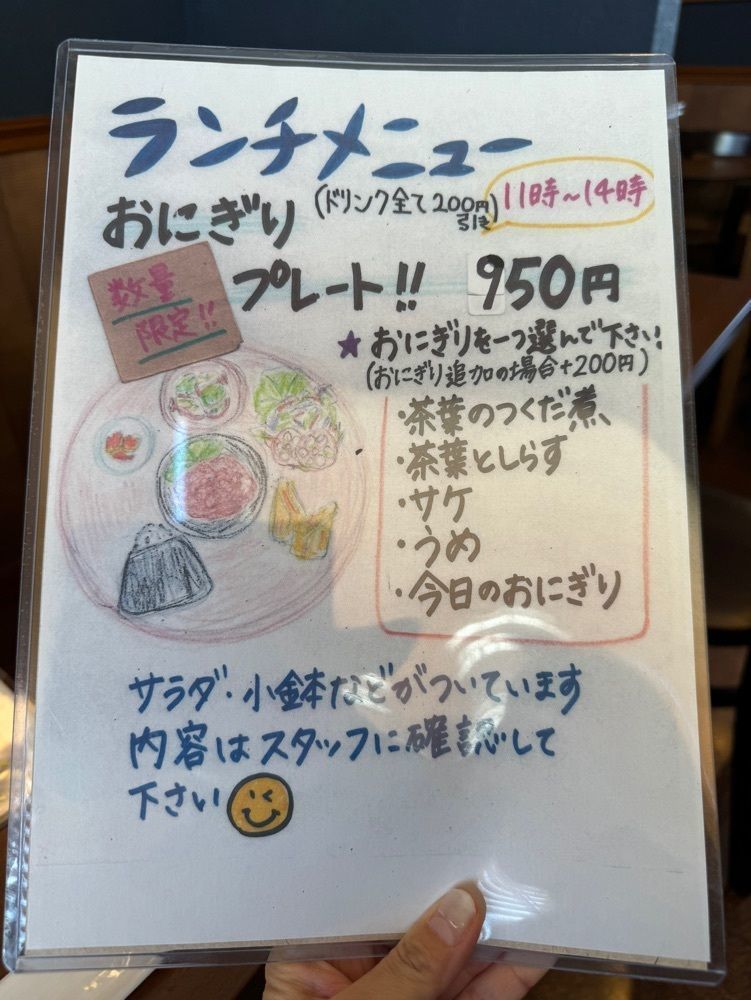 ランチメニュー
(ドリンク全て200円引き)
11時～14時
おにぎり
プレート!! 950円
数量
限定!!
★ おにぎりを一つ選んで下さい
(おにぎり追加の場合+200円)
・茶葉のつくだ煮
・茶葉としらす
・サケ
・うめ
・今日のおにぎり
サラダ・小鉢などがついています
内容はスタッフに確認して
下さい